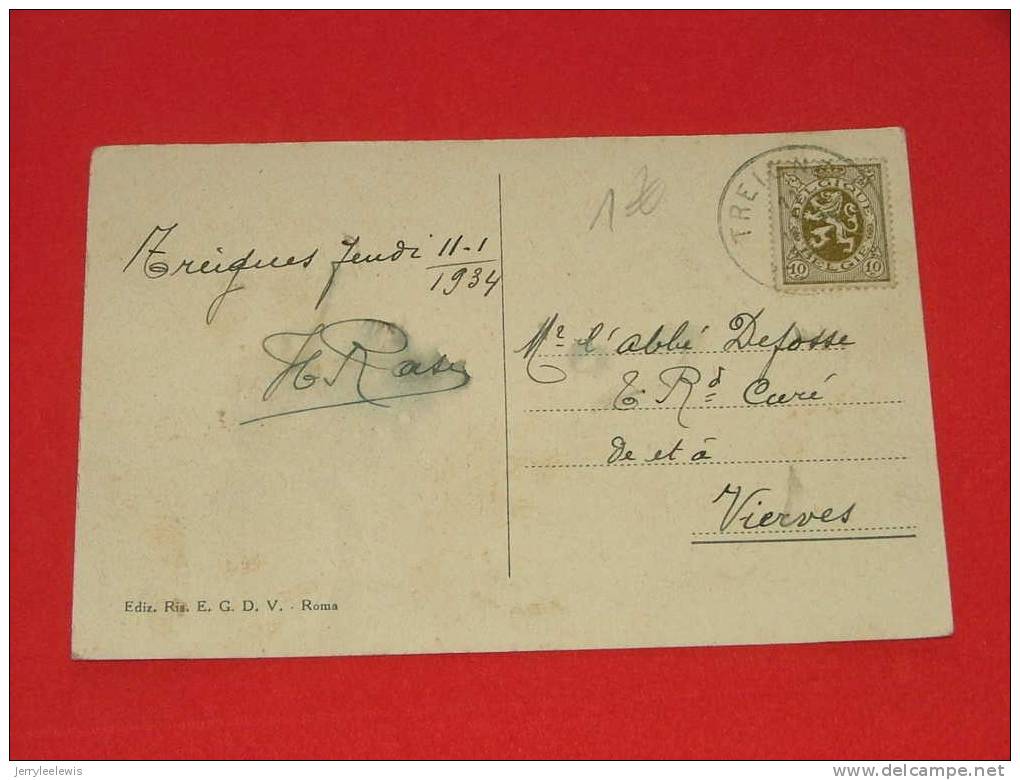 Treignes Jeudi 11-1
1934
H Rase
Ediz. Ris. E. G. D. V. - Roma
1
TREIGN
BELGIQUE
BELGIË
10 10
Mr l'abbé Defosse
T. Rd Curé
de et à
Vierves
jerryleelewis
delcampe.net